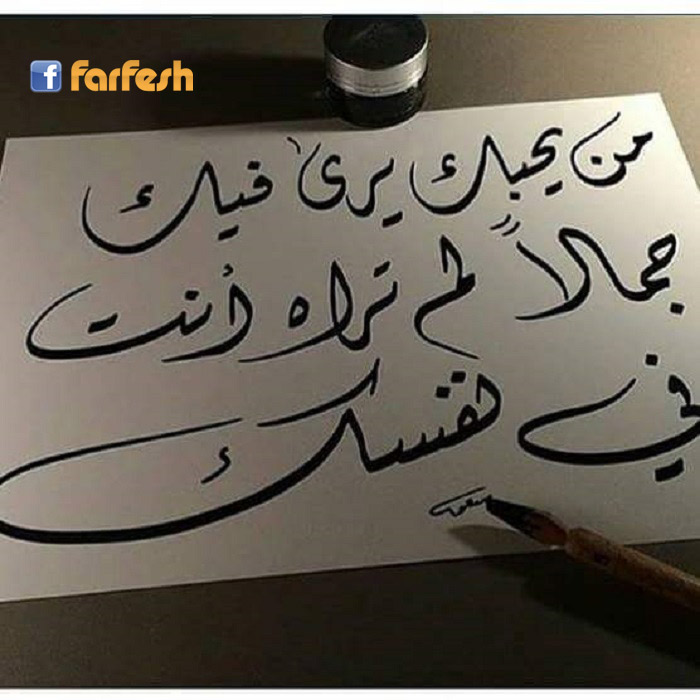 farfesh
من يحبك يرى فيك
جمالاً لم تراه أنت
في نفسك